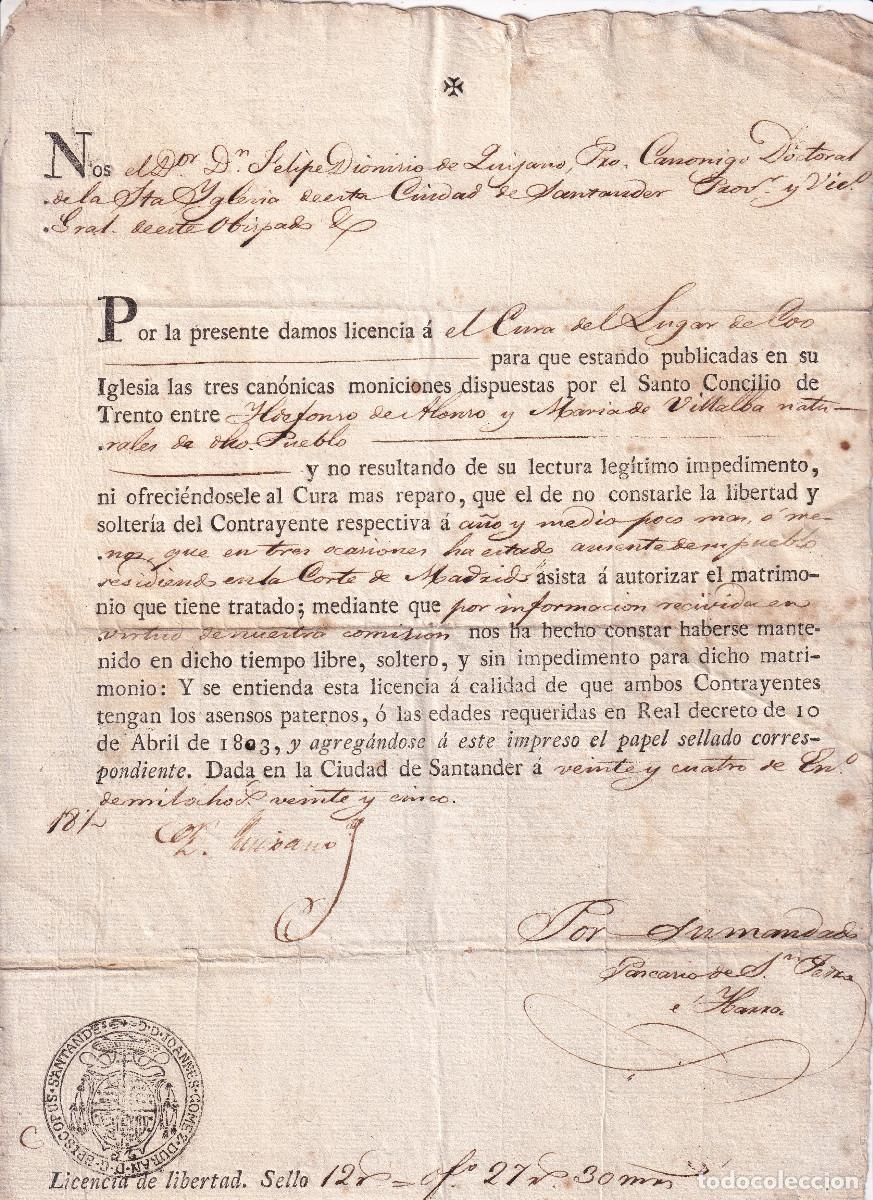 Nos el Dor. Dn. Felipe Dionisio de Quijano, Pro. Canonigo Doctoral
de la Sta Yglesia de esta Ciudad de Santander Provr. y Vic.o
Gral. de este Obispado &
Por la presente damos licencia á el Cura del Lugar de Coo
para que estando publicadas en su
Iglesia las tres canónicas moniciones dispuestas por el Santo Concilio de
Trento entre Ildefonso de Alonso y Maria de Villalba natu-
rales de dho. Pueblo
y no resultando de su lectura legítimo impedimento,
ni ofreciéndosele al Cura mas reparo, que el de no constarle la libertad y
soltería del Contrayente respectiva á año y medio poco mas, ó me-
nos, que en tres ocasiones ha estado ausente de su pueblo
residiendo en la Corte de Madrid asista á autorizar el matrimo-
nio que tiene tratado; mediante que por informacion recivida en
virtud de nuestra comision nos ha hecho constar haberse mante-
nido en dicho tiempo libre, soltero, y sin impedimento para dicho matri-
monio: Y se entienda esta licencia á calidad de que ambos Contrayentes
tengan los asensos paternos, ó las edades requeridas en Real decreto de 10
de Abril de 1803, y agregándose á este impreso el papel sellado corres-
pondiente. Dada en la Ciudad de Santander á veinte y cuatro de En.o
de mil ochos. veinte y cinco.
Quijano
Por su mandado
de Sn.
D. D. IOANNES GOMEZ DURAN D. G. EPISCOPUS SANTANDE
Licencia de libertad. Sello 12 r = of.o 27 r. 30 mrs
todocoleccion